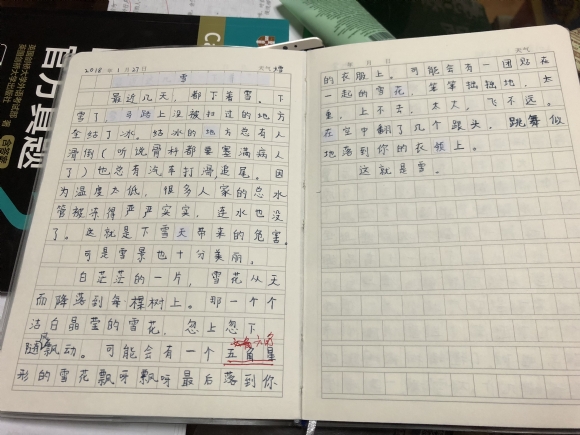 2018 年 1 月 27 日 天气 晴
雪
最近几天，都下着雪。下
雪了 马路上没被扫过的地方
全结了冰，结冰的地方总有人
滑倒（听说骨科都要塞满病人
了）也总有汽车打滑追尾。因
为温度太低，很多人家的总水
管被冻得严严实实，连水也没
了。这就是下雪天带来的危害。
可是雪景也十分美丽。
白茫茫的一片，雪花从天
而降落到每棵树上。那一个个
洁白晶莹的雪花，忽上忽下
随风飘动。可能会有一个五角星
六角
形的雪花飘呀飘呀最后落到你
年 月 日 天气
的衣服上。可能会有一团粘在
一起的雪花，笨笨拙拙地，太
重，上不去，太大，飞不远。
在空中翻了几个跟头，跳舞似
地落到你的衣领上。
这就是雪。
官方真题
Ca
英国剑桥大学外语考试部 著
英国剑桥大学出版社
含答案